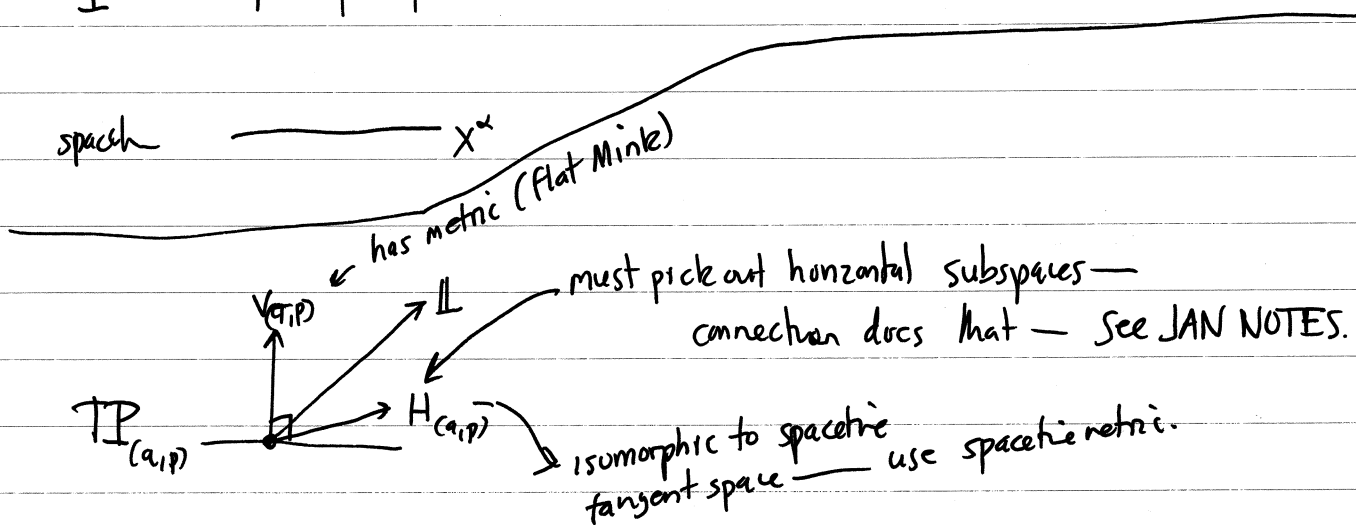 X^α
has metric (flat Mink)
V(σ,p)
𝕃
must pick out horizontal subspaces—
connection does that — See JAN NOTES.
TP(a,p)
H(a,p)
isomorphic to spacetime
tangent space — use spacetime metric.